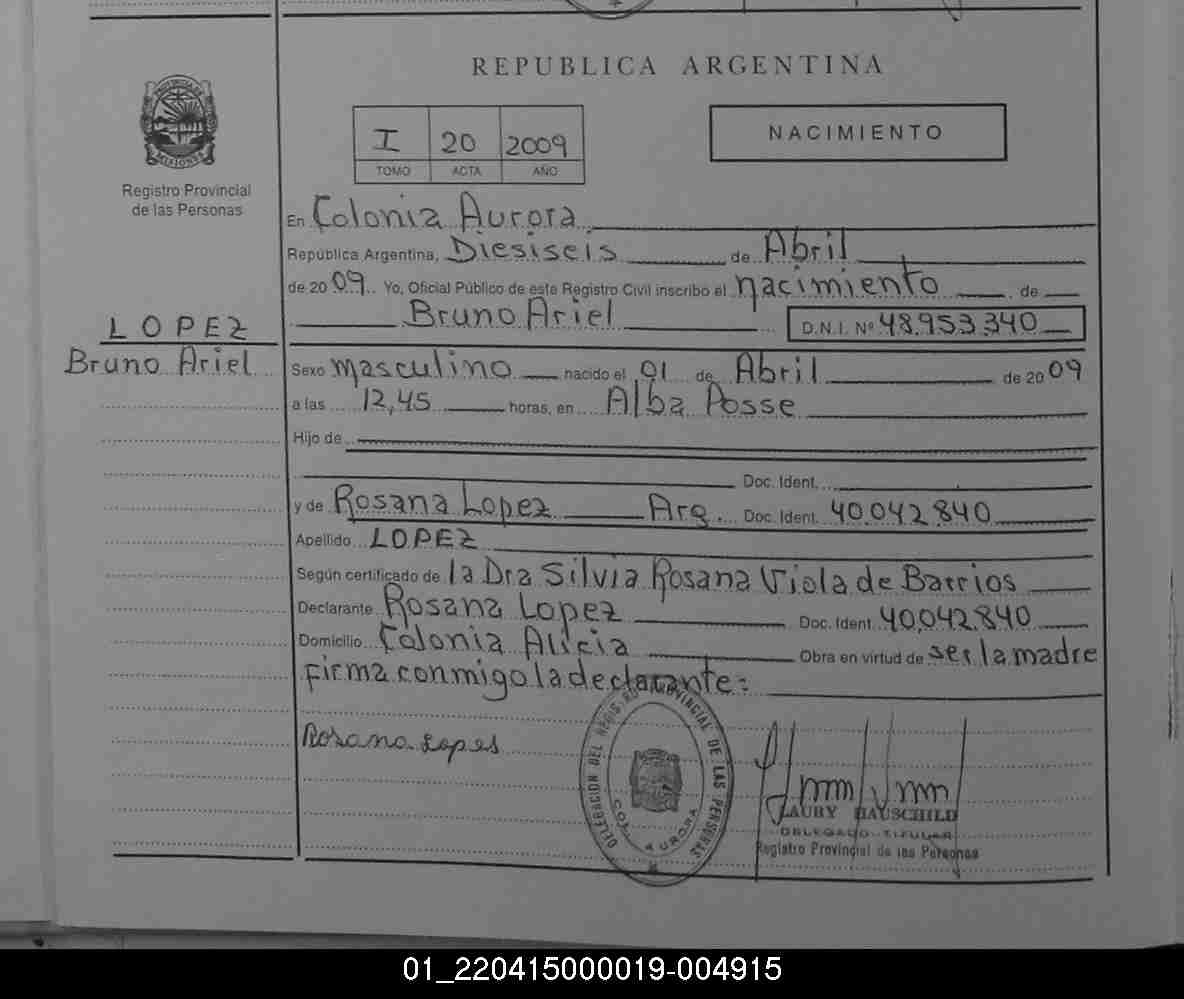 REPUBLICA ARGENTINA
PROVINCIA DE
MISIONES
Registro Provincial
de las Personas
I 20 2009
TOMO ACTA AÑO
NACIMIENTO
En Colonia Aurora
República Argentina, Diesiseis de Abril
de 2009. Yo, Oficial Público de este Registro Civil inscribo el nacimiento de
Bruno Ariel D.N.I. Nº 48.953.340
LOPEZ
Bruno Ariel
Sexo masculino nacido el 01 de Abril de 2009
a las 12,45 horas, en Alba Posse
Hijo de
Doc. Ident.
y de Rosana Lopez Arg. Doc. Ident. 40.042.840
Apellido LOPEZ
Según certificado de la Dra Silvia Rosana Viola de Barrios
Declarante Rosana Lopez Doc. Ident. 40.042.840
Domicilio Colonia Alicia Obra en virtud de ser la madre
firma conmigo la declarante:
Rosana Lopes
DELEGACION DEL REGISTRO PROVINCIAL DE LAS PERSONAS
COL. AURORA
LAURY HAUSCHILD
DELEGADO TITULAR
Registro Provincial de las Personas
01_220415000019-004915